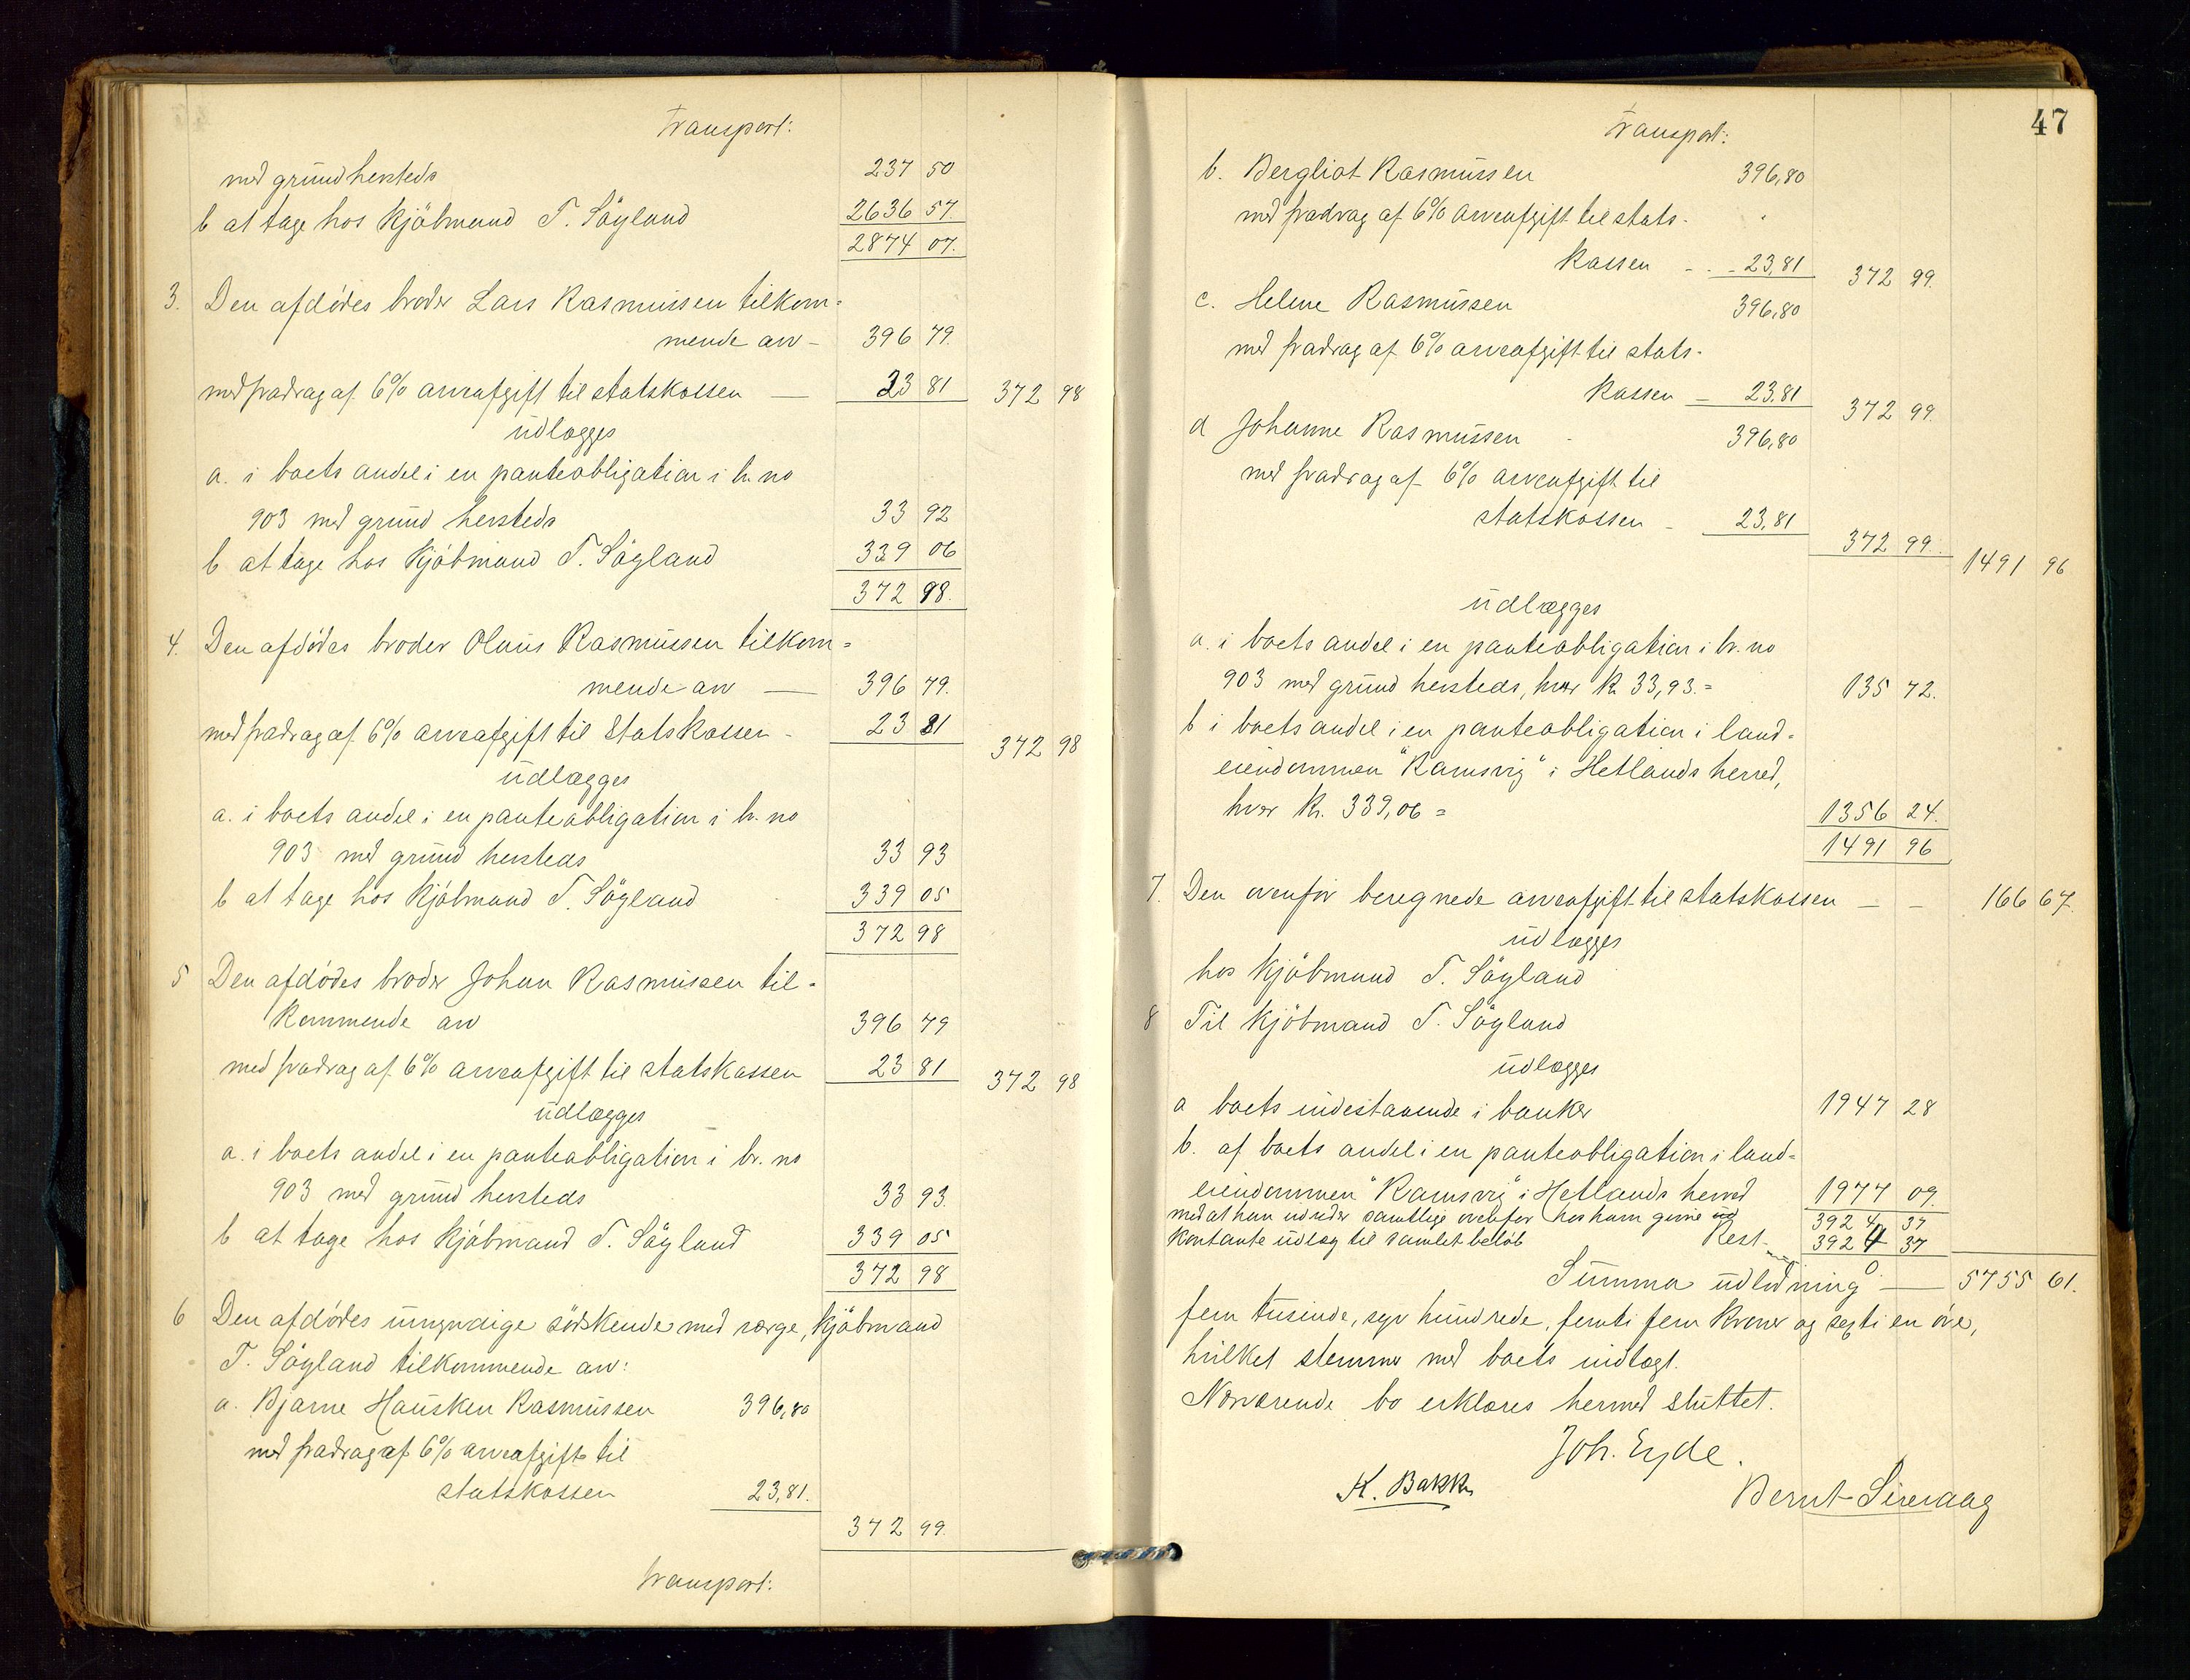 Transport:
med grund hersteds 237 50
b at tage hos Kjöbmand T. Söyland 2636 57
2874 07.
3. Den afdödes broder Lars Rasmussen tilkom=
mende arv - 396 79.
med fradrag af 6% arveafgift til statskassen — 23 81 372 98
udlægges
a. i boets andel i en panteobligation i br. no
903 med grund hersteds 33 92
b at tage hos Kjöbmand T. Söyland 339 06
372 98.
4. Den afdödes broder Olaus Rasmussen tilkom=
mende arv — 396 79.
med fradrag af 6% arveafgift til Statskassen - 23 81 372 98
udlægges
a. i boets andel i en panteobligation i br. no
903 med grund hersteds 33 93
b at tage hos Kjöbmand T. Söyland 339 05
372 98
5 Den afdödes broder Johan Rasmussen til=
kommende arv 396 79
med fradrag af 6% arveafgift til statskassen 23 81 372 98
udlægges
a. i boets andel i en panteobligation i br. no
903 med grund hersteds 33 93.
b at tage hos Kjöbmand T. Söyland 339 05
372 98
6 Den afdödes umyndige södskende med værge, Kjöbmand
T. Söyland tilkommende arv:
a. Bjarne Hausken Rasmussen 396,80
med fradrag af 6% arveafgift til
statskassen 23,81.
372 99.
Transport:
47
Transport:
b. Bergliot Rasmussen 396,80
med fradrag af 6% arveafgift til stats-
kassen - - 23,81 372 99.
c. Helene Rasmussen 396,80
med fradrag af 6% arveafgift til stats-
kassen - 23,81 372 99.
d Johanne Rasmussen 396,80
med fradrag af 6% arveafgift til
statskassen - 23,81 372 99. 1491 96
udlægges
a. i boets andel i en panteobligation i br. no
903 med grund hersteds, hver kr. 33,93.= 135 72.
b i boets andel i en panteobligation i land=
eiendommen "Ramsvig" i Hetlands herred,
hver kr. 339,06 = 1356 24.
1491 96
7. Den ovenfor beregnede arveafgift til statskassen — — 166 67.
udlægges
hos Kjöbmand T. Söyland
8 Til Kjöbmand T. Söyland
udlægges
a boets indestaaende i banker 1947 28
b. af boets andel i en panteobligation i land=
eiendommen "Ramsvig" i Hetlands herred 1977 09.
med at han udreder samtlige ovenfor hos ham givne
kontante udlæg til samlet belöb 3924 37
Rest 3924 37 0
Summa udlodning — 5755 61.
fem tusinde, syv hundrede, femti fem kroner og sexti en öre,
hvilket stemmer med boets indtægt.
Nærværende bo erklæres hermed sluttet.
Joh. Eyde.
K. Bakke
Bernt Sirevaag